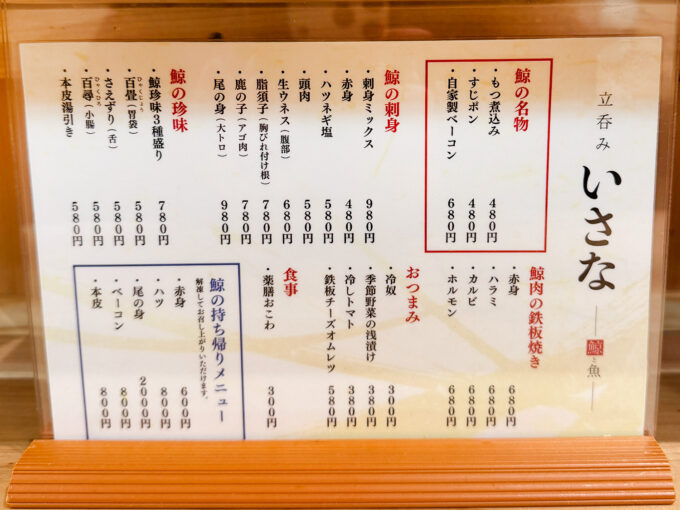 立呑み
いさな
鯨と魚
鯨の名物
・もつ煮込み 480円
・すじポン 480円
・自家製ベーコン 680円
鯨の刺身
・刺身ミックス 980円
・赤身 480円
・ハツネギ塩 580円
・頭肉 580円
・生ウネス(腹部) 680円
・脂須子(胸びれ付け根) 780円
・鹿の子(アゴ肉) 780円
・尾の身(大トロ) 980円
鯨の珍味
・鯨珍味3種盛り 780円
・百畳(胃袋) 580円
ひゃくじょう
・さえずり(舌) 580円
・百尋(小腸) 580円
ひゃくひろ
・本皮湯引き 580円
鯨肉の鉄板焼き
・赤身 680円
・ハラミ 680円
・カルビ 680円
・ホルモン 680円
おつまみ
・冷奴 300円
・季節野菜の浅漬け 380円
・冷しトマト 380円
・鉄板チーズオムレツ 580円
食事
・薬膳おこわ 300円
鯨の持ち帰りメニュー
解凍してお召し上がりいただけます。
・赤身 600円
・ハツ 800円
・尾の身 2000円
・ベーコン 800円
・本皮 800円